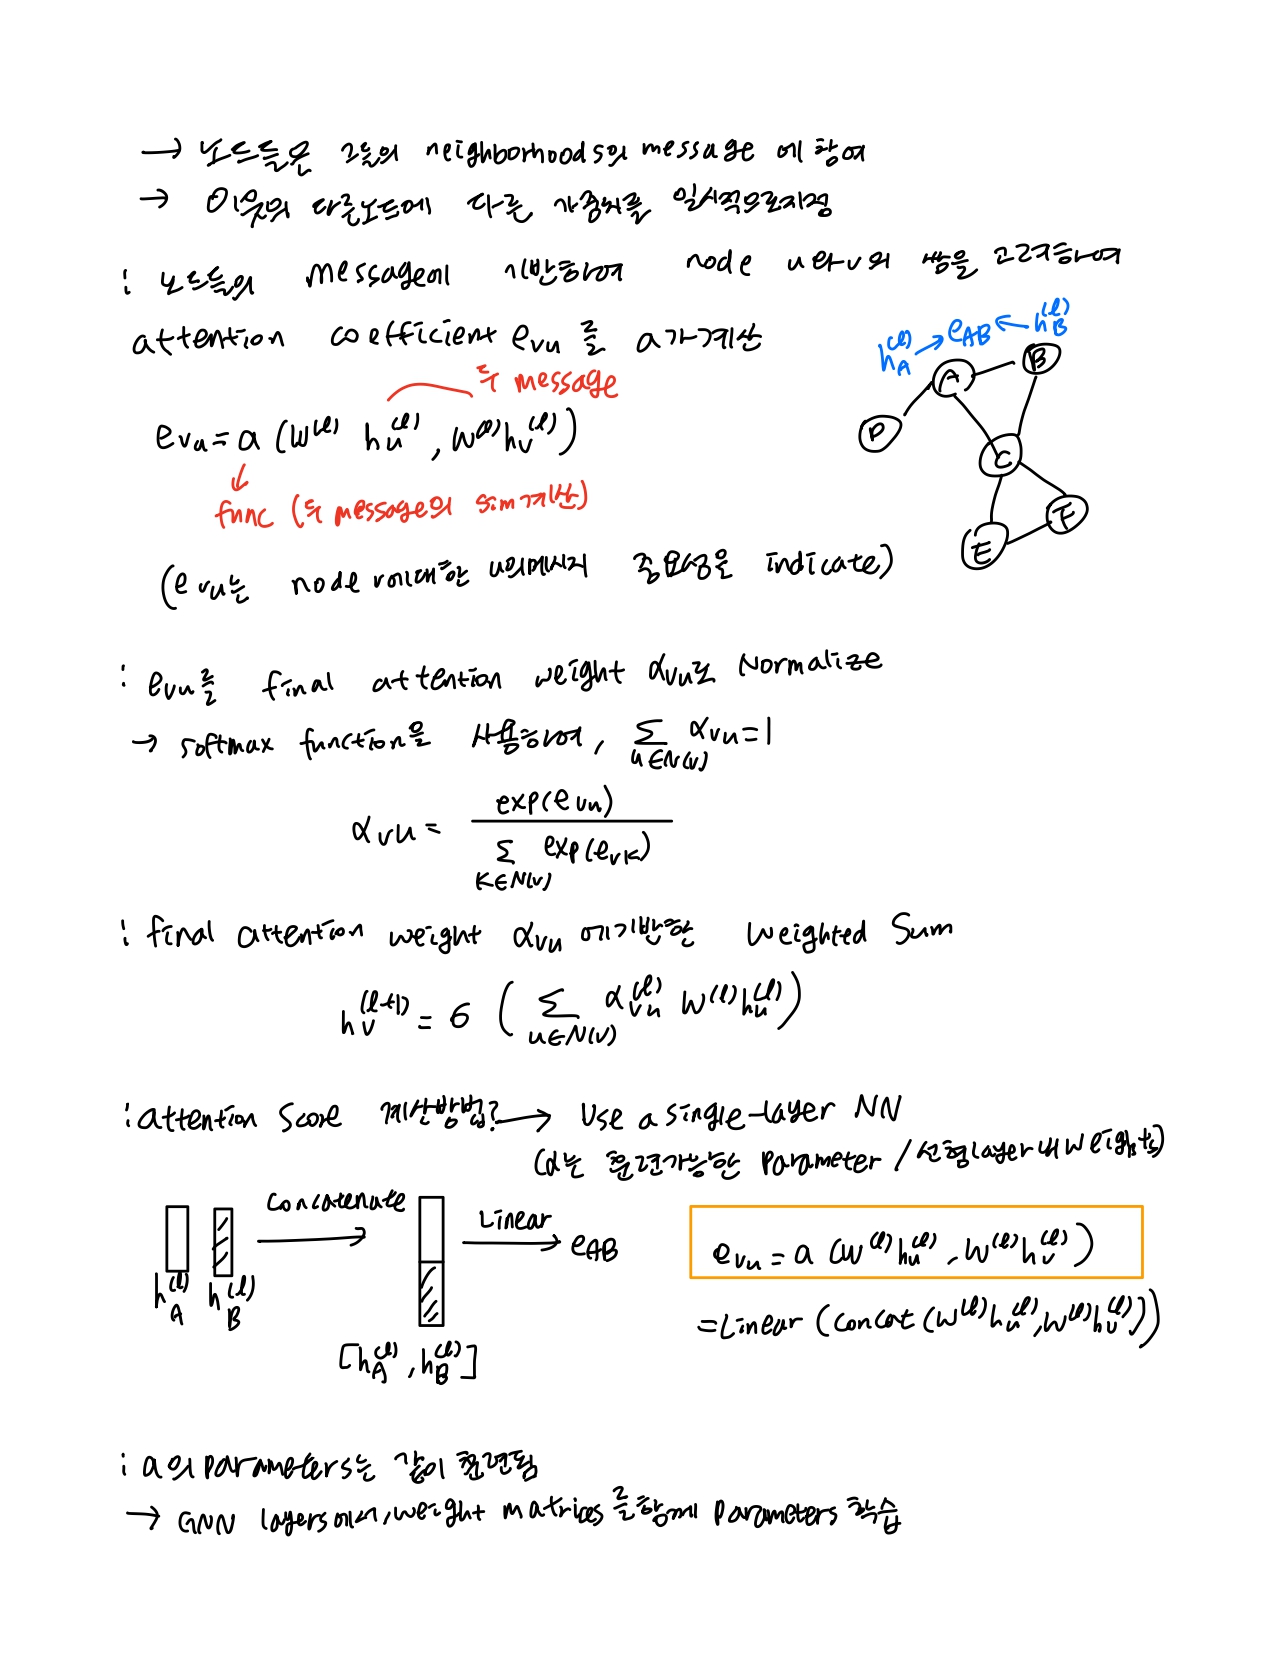 → 노드들은 그들의 neighborhoods의 message에 참여
→ 이웃의 다른노드에 다른 가중치를 일시적으로지정
: 노드들의 message에 기반하여 node u와v의 쌍을 고려하여
attention coefficient e_vu를 a가계산
h_A^(l) → e_AB ← h_B^(l)
A
B
P
C
E
F
두 message
e_vu = a (W^(l) h_u^(l), W^(l) h_v^(l))
func (두 message의 sim계산)
(e_vu는 node v에대한 u의메시지 중요성을 indicate)
: e_vu를 final attention weight α_vu로 Normalize
→ softmax function을 사용하여, Σ_{u∈N(v)} α_vu = 1
α_vu = exp(e_vu) / Σ_{K∈N(v)} exp(e_vK)
: final attention weight α_vu에기반한 weighted Sum
h_v^(l+1) = 6 (Σ_{u∈N(v)} α_vu^(l) W^(l) h_u^(l))
: attention Score 계산방법? → Use a single-layer NN
(a는 훈련가능한 Parameter / 선형layer내 weights)
Concatenate
Linear
e_AB
h_A^(l) h_B^(l)
[h_A^(l), h_B^(l)]
e_vu = a (W^(l) h_u^(l), W^(l) h_v^(l))
= Linear (Concat (W^(l) h_u^(l), W^(l) h_v^(l)))
: a의 parameters는 같이 훈련됨
→ GNN layers에서, weight matrices를함께 parameters 학습